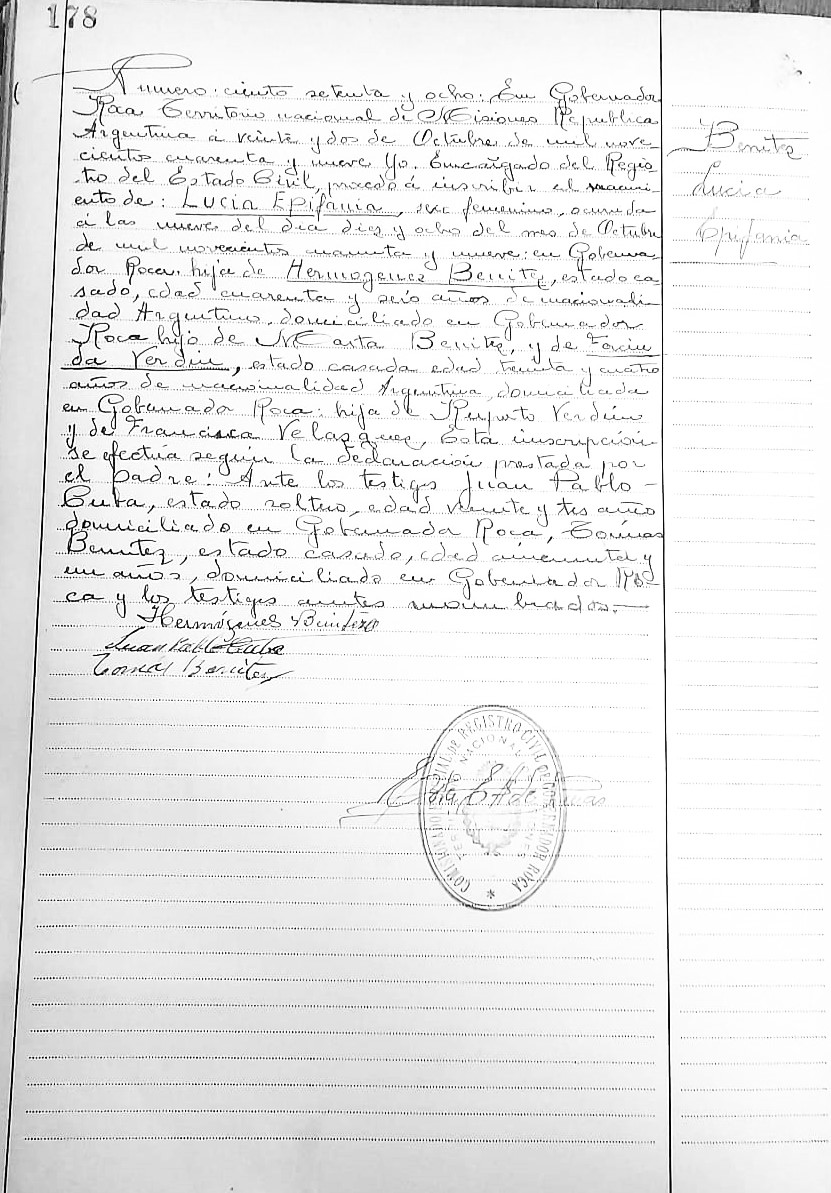 178
Numero: ciento setenta y ocho: En Gobernador
Roca Territorio nacional de Misiones Republica
Argentina á veinte y dos de Octubre de mil nove
cientos cuarenta y nueve Yo. Encargado del Regis
tro del Estado Civil, procedo á inscribir el nacimi
ento de: Lucia Epifania, sexo femenino, ocurrida
á las nueve del dia diez y ocho del mes de Octubre
de mil novecientos cuarenta y nueve: en Goberna
dor Roca. hija de Hermogenes Benitez, estado ca
sado, edad cuarenta y seis años de nacionali
dad Argentino, domiciliado en Gobernador
Roca hijo de Marta Benitez, y de
da Verdin, estado casada edad treinta y cuatro
años de nacionalidad Argentina, domiciliada
en Gobernador Roca: hija de Ruperto Verdino
y de Francisca Velasquez, Esta inscripción
se efectua según la declaración prestada por
el padre: Ante los testigos Juan Pablo-
Cuba, estado soltero, edad veinte y tres año
domiciliado en Gobernador Roca, Tomas
Benitez, estado casado, edad cincuenta y
un años, domiciliado en Gobernador Ro-
ca y los testigos antes nombrados.-
Hermógenes Benitez
Juan Pablo Cuba
Tomás Benitez
Benitez
Lucia
Epifania
REGISTRO CIVIL DE GOBERNADOR ROCA
NACIONAL